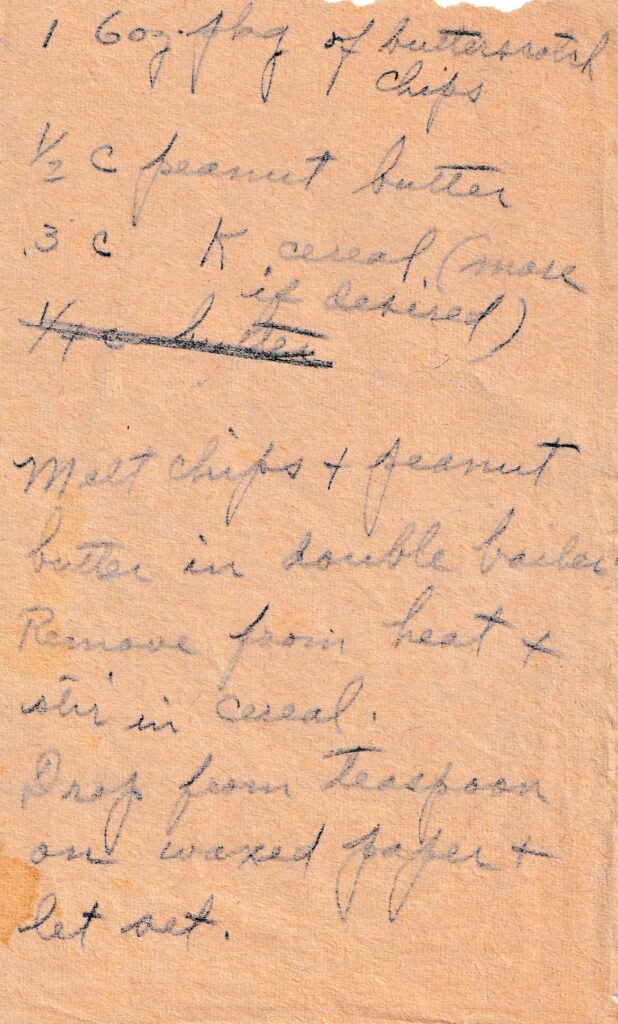 1 6 oz. pkg of butterscotch
chips
1/2 c peanut butter
3 c K cereal (more
if desired)
1/4 c butter
Melt chips + peanut
butter in double boiler
Remove from heat +
stir in cereal.
Drop from teaspoon
on waxed paper +
let set.